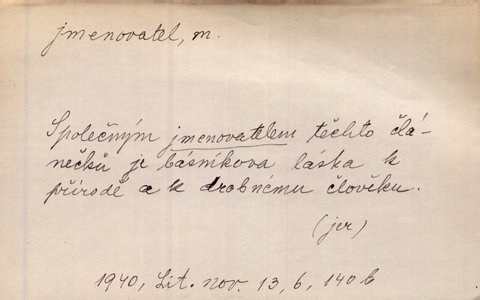 jmenovatel, m.
Společným jmenovatelem těchto člá-
nečků je básníkova láska k
přírodě a k drobnému člověku.
(jer)
1940, Lit. nov. 13, 6, 140 b